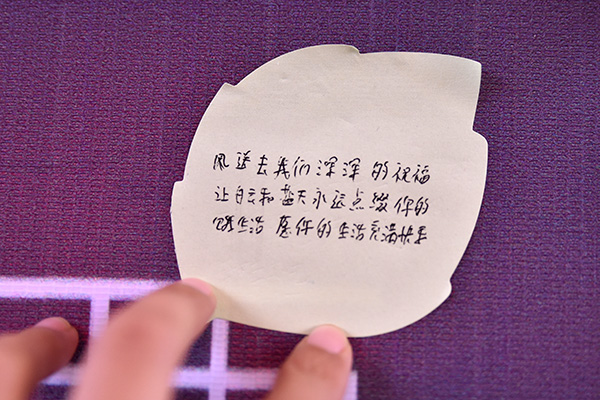 风送去我们深深的祝福
让白云和蓝天永远点缀你的
生活 愿你的生活充满快乐